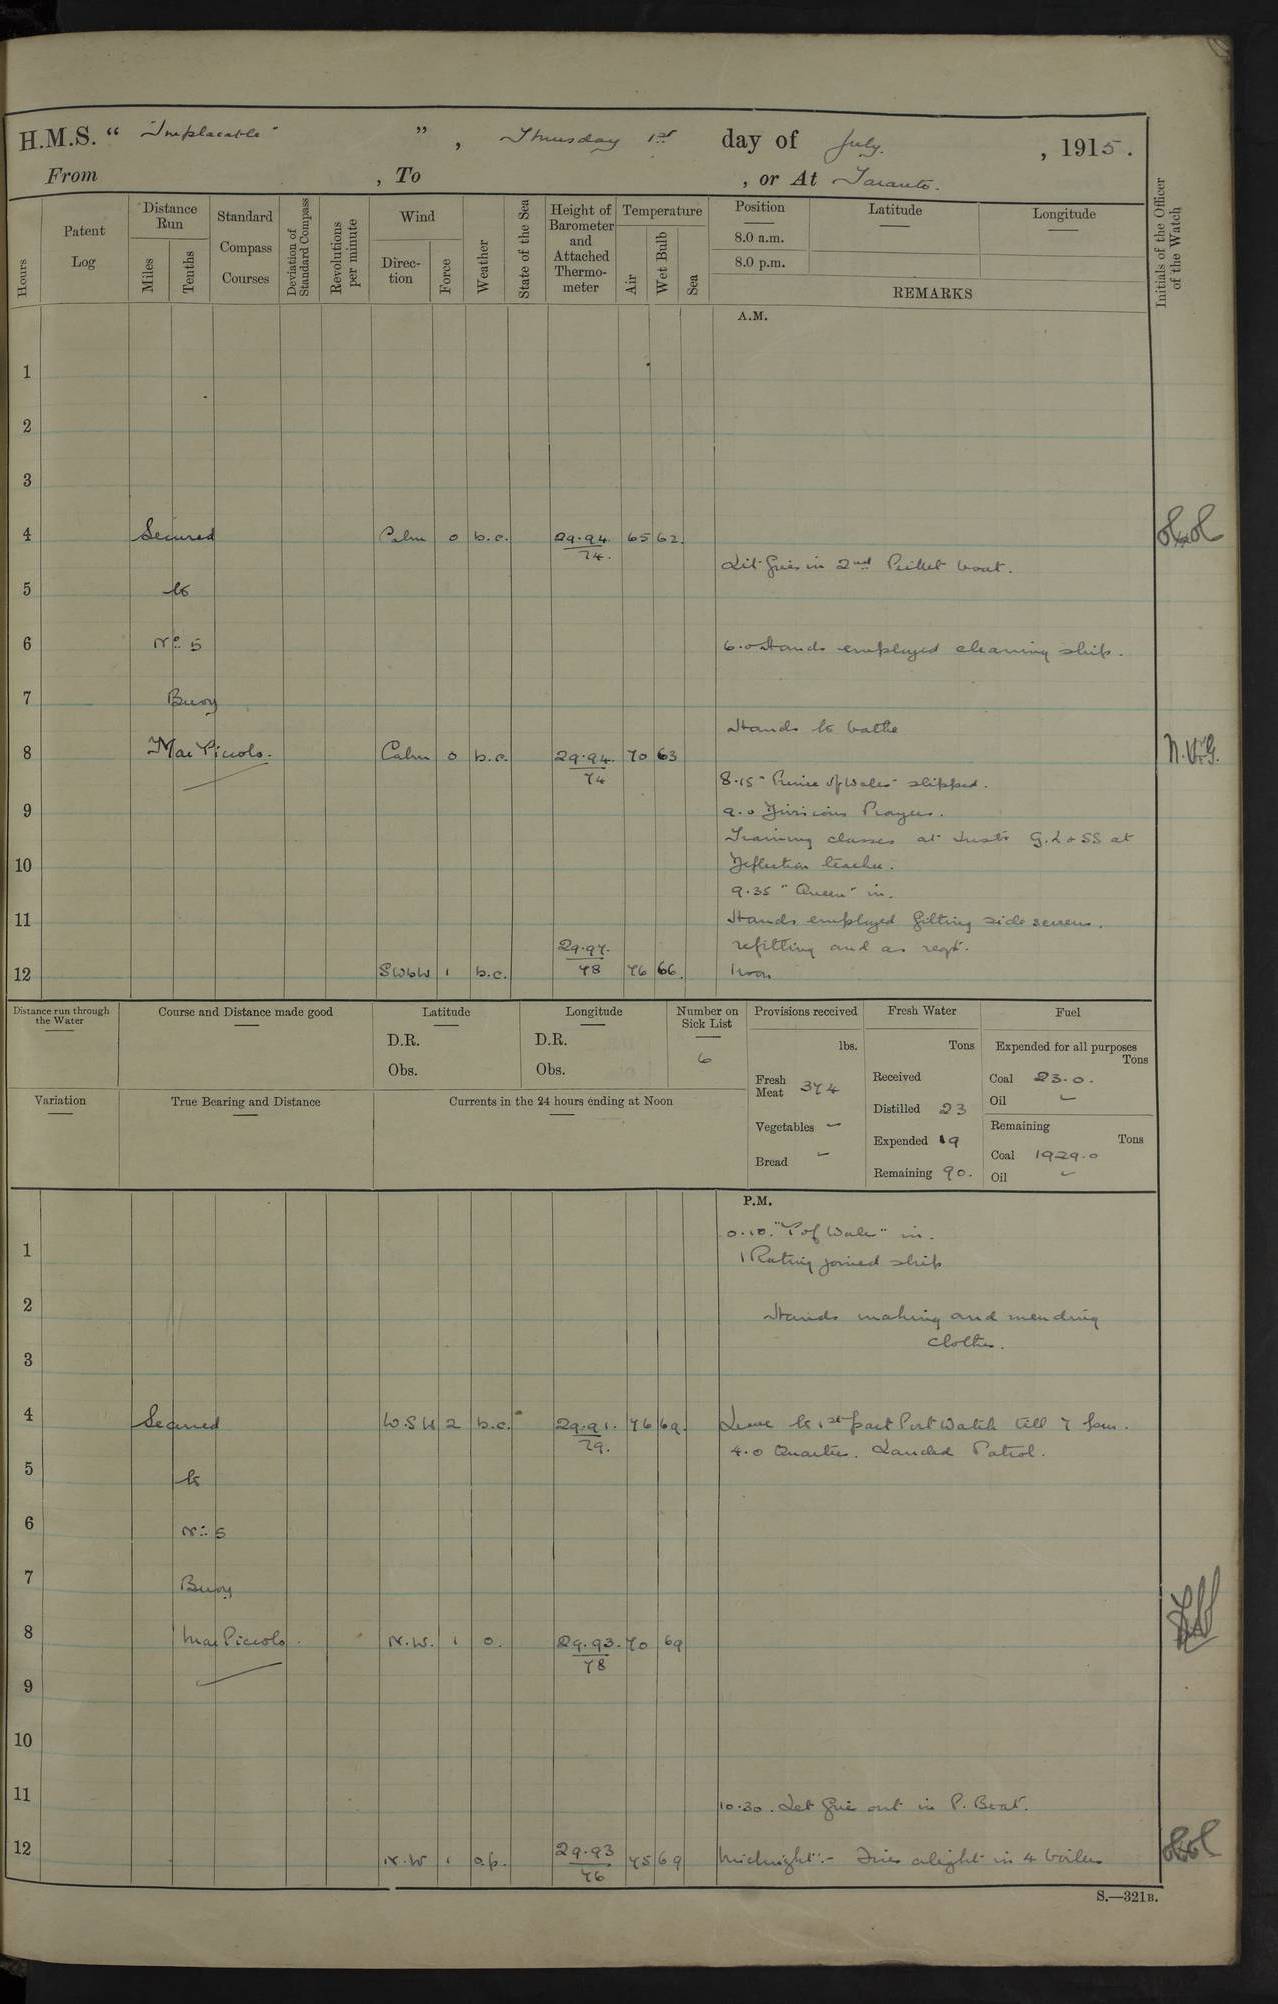 H.M.S. “ "Implacable" ” , Thursday 1st day of July , 1915.
From , To , or At Taranto.
Hours
Patent Log
Distance Run
Miles
Tenths
Standard Compass Courses
Deviation of Standard Compass
Revolutions per minute
Wind
Direction
Force
Weather
State of the Sea
Height of Barometer and Attached Thermometer
Temperature
Air
Wet Bulb
Sea
Position
8.0 a.m.
8.0 p.m.
Latitude
Longitude
REMARKS
Initials of the Officer of the Watch
A.M.
1
2
3
4 Secured Calm 0 b.c. 29.94 74. 65 62.
Lit fires in 2nd Picket boat.
5 to
6 No. 5 6.0 Hands employed cleaning ship.
7 Buoy
Hands to bathe
8 Mar Piccolo. Calm 0 b.c. 29.94 74 70 63 N.V.G.
8.15 "Prince of Wales" slipped.
9 9.0 Divisions Prayers.
Training classes at Instn G.L & SS at
10 Deflection teacher.
9.35 "Queen" in.
11 Hands employed fitting side screens.
refitting and as reqd.
12 SWbW 1 b.c. 29.97. 78 76 66. Noon
Distance run through the Water
Course and Distance made good
Latitude
D.R.
Obs.
Longitude
D.R.
Obs.
Number on Sick List
6
Provisions received
lbs.
Fresh Meat 374
Vegetables –
Bread –
Fresh Water
Tons
Received
Distilled 23
Expended 19
Remaining 90.
Fuel
Expended for all purposes
Tons
Coal 23.0.
Oil –
Remaining
Tons
Coal 1929.0
Oil –
Variation
True Bearing and Distance
Currents in the 24 hours ending at Noon
P.M.
0.10. "P of Wales" in.
1 1 Rating joined ship
2 Hands making and mending
clothes.
3
4 Secured W.SW 2 b.c. 29.91. 79. 76 69. Leave to 1st part Port Watch till 7 pm.
4.0 Quarters. Landed Patrol.
5 to
6 No. 5
7 Buoy
8 Mar Piccolo. N.W. 1 o. 29.93. 78 70 69
9
10
11 10.30. Let fires out in P. Boat.
12 N.W 1 o.p. 29.93 76 75 69 Midnight:- Fires alight in 4 boilers
S.—321B.